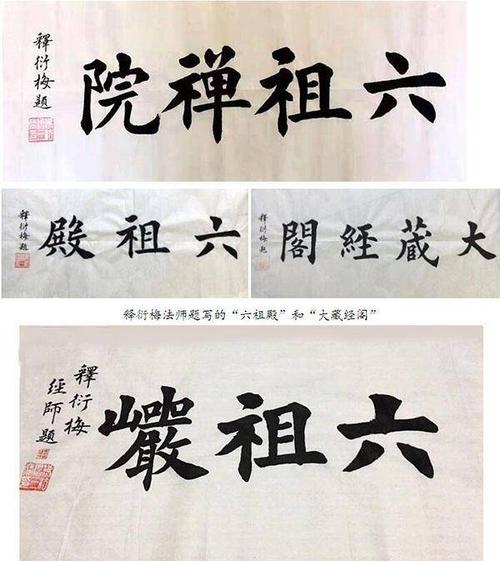 六祖禅院
釋衍梅題
六祖殿
釋衍梅題
大蔵經閣
釋衍梅題
释衍梅法师题写的“六祖殿”和“大藏经阁”
六祖巗
釋衍梅
經師題